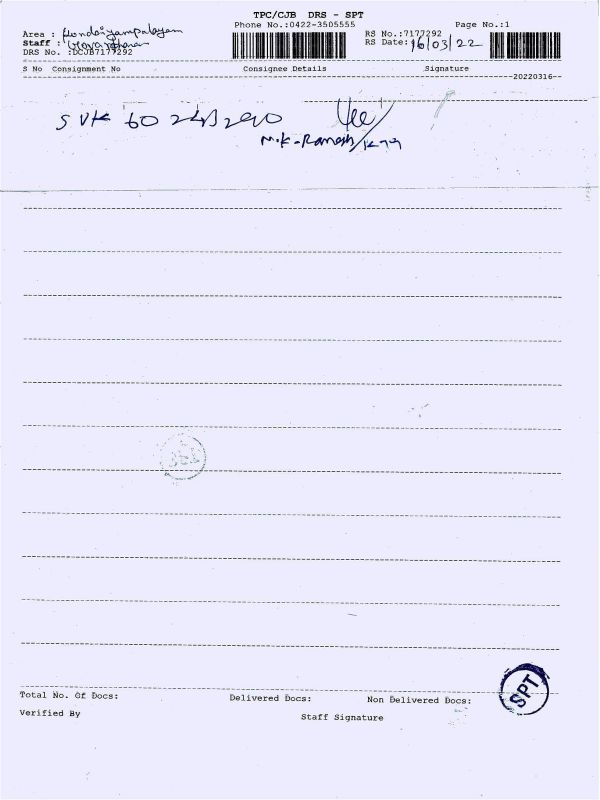 TPC/CJB DRS - SPT
Phone No.:0422-3505555
Page No.:1
Area : Kundaiyampalayam
Staff :
RS No.:7177292
DRS No. :DCJB7177292
RS Date: 16/03/22
S No Consignment No Consignee Details Signature
20220316
SVK 60
M.K-Ramesh
Total No. Of Docs: Delivered Docs: Non Delivered Docs:
SPT
Verified By Staff Signature